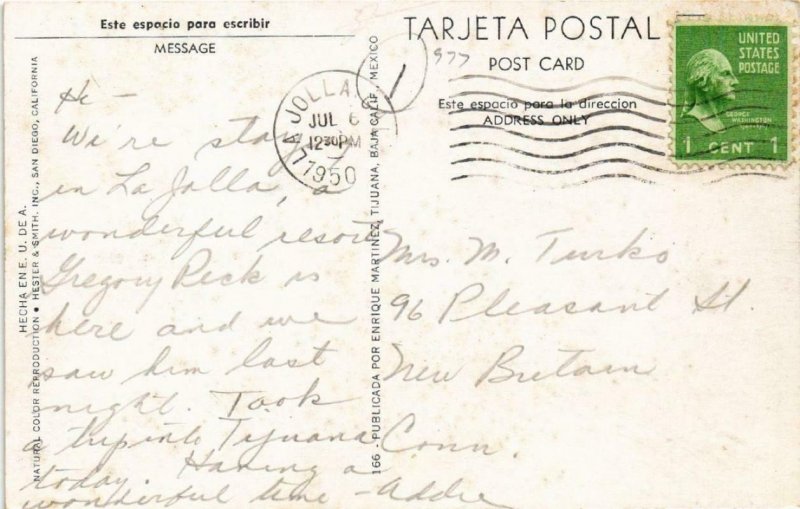 Este espacio para escribir
MESSAGE
TARJETA POSTAL
POST CARD
Este espacio para la direccion
ADDRESS ONLY
977
1
LA JOLLA
JUL 6
12 30 PM
1950
UNITED
STATES
POSTAGE
GEORGE
WASHINGTON
1 CENT 1
Hi -
We're stay
in La Jolla, a
wonderful resort
Gregory Peck is
here and we
saw him last
night. Took
a trip into Tijuana
today. Having a
wonderful time - Addie
Mrs. M. Turko
96 Pleasant St.
New Britain
Conn.
HECHA EN E. U. DE A.
NATURAL COLOR REPRODUCTION • HESTER & SMITH, INC., SAN DIEGO, CALIFORNIA
166 - PUBLICADA POR ENRIQUE MARTINEZ, TIJUANA, BAJA CALIF., MEXICO